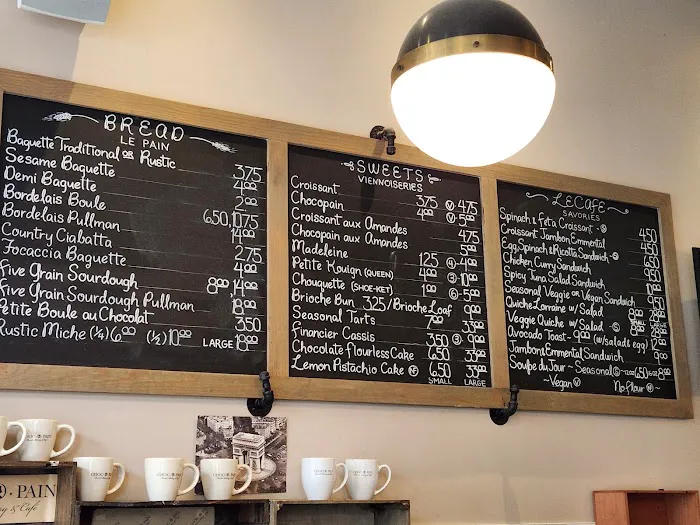 BREAD
LE PAIN
Baguette Traditional OR Rustic 3.75
Sesame Baguette 4.00
Demi Baguette 2.00
Bordelais Boule 6.50 10.75
Bordelais Pullman 14.00
Country Ciabatta 2.75
Focaccia Baguette 4.00
Five Grain Sourdough 8.00 14.00
Five Grain Sourdough Pullman 18.00
Petite Boule au Chocolat 3.50
Rustic Miche (1/4) 6.00 (1/2) 10.00 LARGE 18.00
SWEETS
VIENNOISERIES
Croissant 3.75 V 4.75
Chocopain 4.00 V 5.00
Croissant aux Amandes 4.75
Chocopain aux Amandes 5.00
Madeleine 1.25 4-4.00
Petite Kouign (QUEEN) 4.00 3-10.00
Chouquette (SHOE-KET) 1.00 6-5.00
Brioche Bun 3.25 / Brioche Loaf 9.00
Seasonal Tarts 7.00 33.00
Financier Cassis 3.50 3 9.00
Chocolate Flourless Cake 6.50 33.00
Lemon Pistachio Cake NF 6.50 33.00
SMALL LARGE
LE CAFE
SAVORIES
Spinach & Feta Croissant - S 4.50
Croissant Jambon Emmental 4.50
Egg Spinach & Ricotta Sandwich - S
Chicken Curry Sandwich
Spicy Tuna Sandwich
Seasonal Veggie OR Vegan Sandwich
Quiche Lorraine w/ Salad
Veggie Quiche w/ Salad - S
Avocado Toast - 9.00 (w/ salad & egg) 12.00
Jambon & Emmental Sandwich 9.00
Soupe du Jour ~ Seasonal S - 12oz 6.50 16oz 8.00
~Vegan V No Flour NF ~
CHOC O PAIN
PAIN
& Café